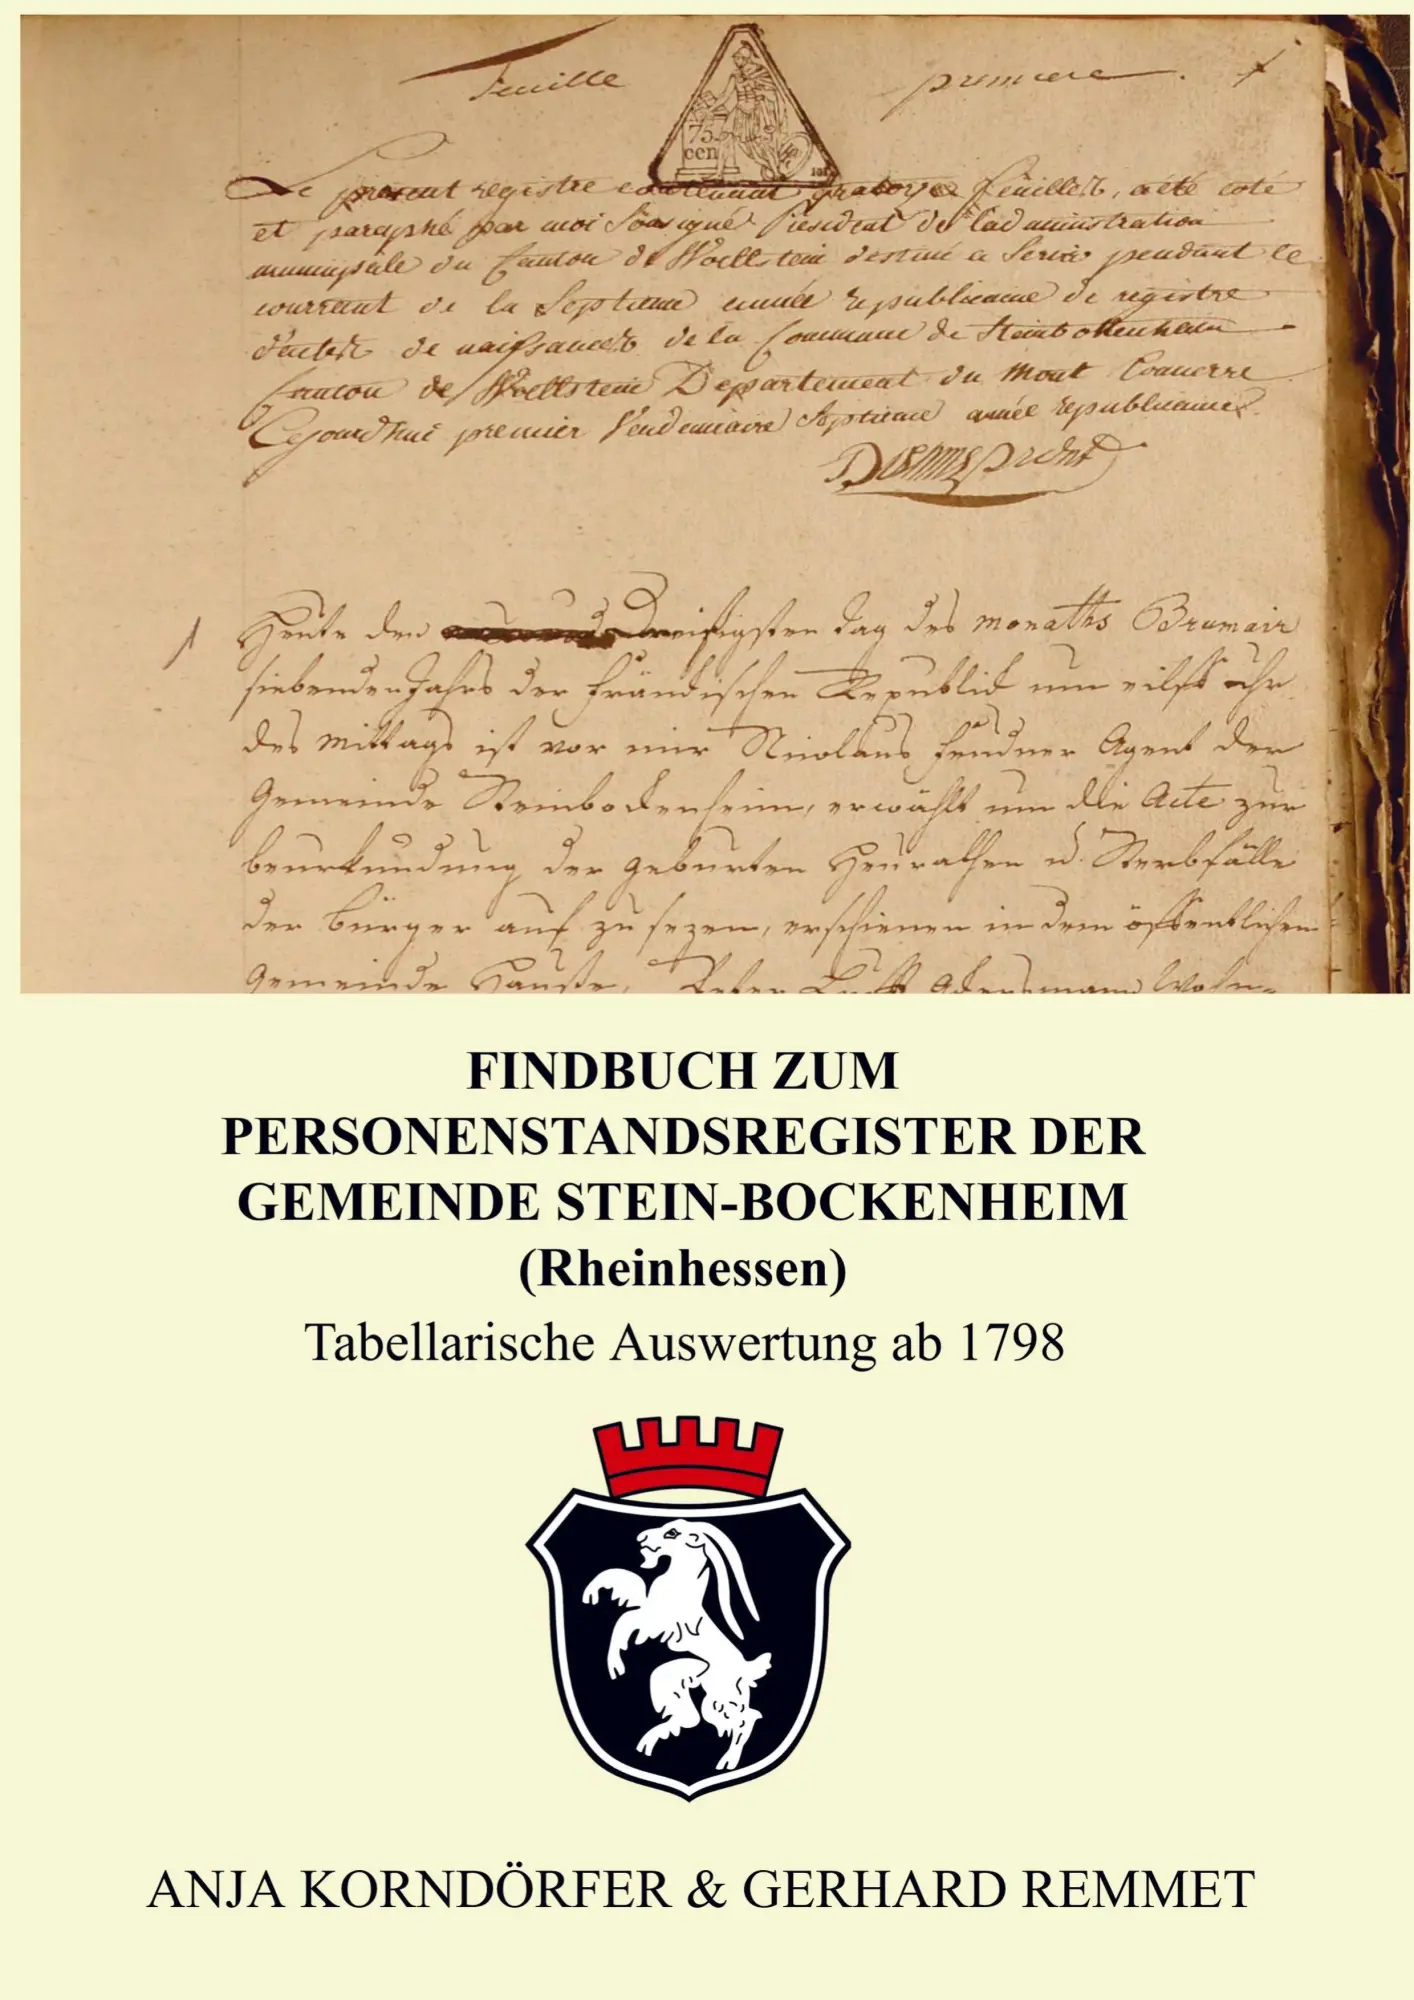 Feuille premiere.
75
cen
Le present registre contenant quatorze feuillets, a été coté
et paraphé par moi soussigné President de l'administration
municipale du Canton de Woellstein destiné a servir pendant le
courrant de la Septieme année republicaine de registre
d'actes de naissances de la Commune de Steinbokenheim
Canton de Woellstein Departement du Mont Tonnerre
Cejourd'hui premier Vendemiaire Septieme année republicaine.
1 Heute den Dreisigsten tag des monaths Brumair
siebenden Jahrs der Fränckischen Republick um eilff uhr
des Mittags ist vor mir Nicolaus Agent der
Gemeinde Steinbockenheim, erwählt um die Acte zur
beurkundung der geburten Heurathen u. Sterbfälle
der bürger auf zu sezen, erschienen in dem öffentlichen
Gemeinde Hauße, Peter Ackersmann Wohn-
FINDBUCH ZUM
PERSONENSTANDSREGISTER DER
GEMEINDE STEIN-BOCKENHEIM
(Rheinhessen)
Tabellarische Auswertung ab 1798
ANJA KORNDÖRFER & GERHARD REMMET